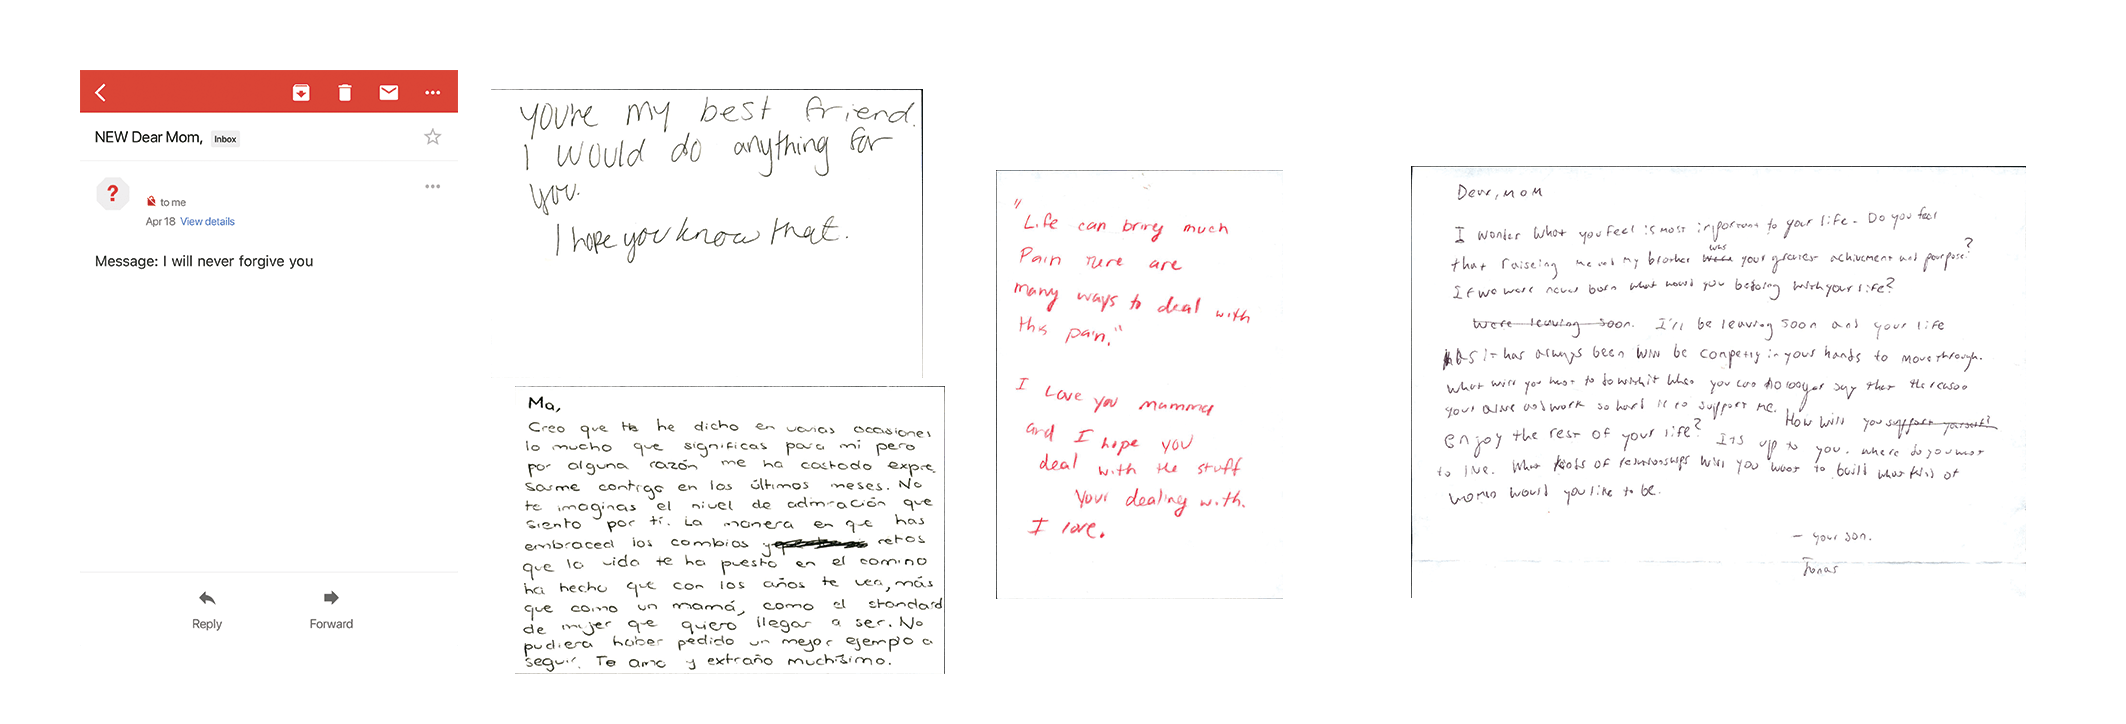 NEW Dear Mom, Inbox
?
to me
Apr 18 View details
Message: I will never forgive you
Reply
Forward
youre my best friend.
I would do anything for
you.
I hope you know that.
Ma,
Creo que te he dicho en varias occasiones
lo mucho que significas para mí pero
por alguna razón me ha costado expre
sarme contigo en los últimos meses. No
te imaginas el nivel de admiración que
siento por tí. La manera en que has
embraced los cambios y retos
que la vida te ha puesto en el camino
ha hecho que con los años te vea, más
que como un mamá, como el standard
de mujer que quiero llegar a ser. No
pudiera haber pedido un mejor ejemplo a
seguir. Te amo y extraño muchísimo.
"
Life can bring much
Pain There are
many ways to deal with
this pain."
I Love you mumma
and I hope you
deal with the stuff
your dealing with.
I love.
Dear, MOM
I wonder what you feel is most important to your life. Do you feel
that raiseing me and my brother was your greatest achivement and pourpose?
If we were never born what would you be doing with your life?
Were leaving soon. I'll be leaving soon and your life
As it has always been will be completly in your hands to move through.
What will you want to do with it when you can no longer say that the reason
your alive and work so hard is to support me. How will you support yourself?
enjoy the rest of your life? Its up to you. where do you want
to live. What kinds of relationships will you want to build what kind of
women would you like to be.
- your son.
Jonas